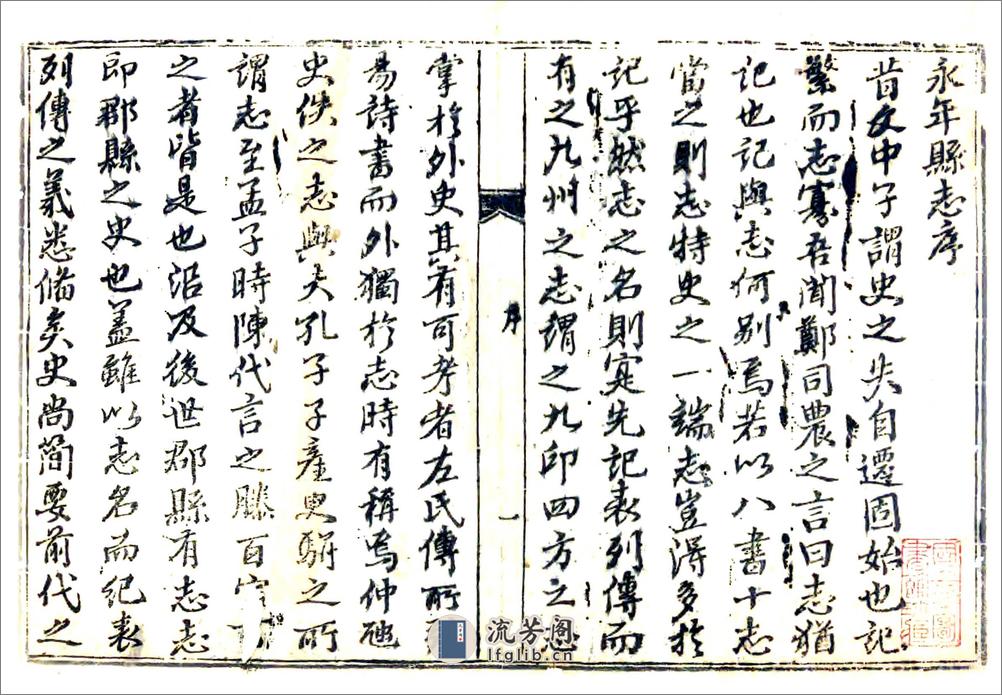 永年縣志序
昔文中子謂史之失自遷固始也記
繁而志寡吾聞鄭司農之言曰志猶
記也記與志何别焉若以八書十志
當之則志特史之一端志豈得多於
記乎然志之名則寔先記表列傳而
有之九州之志謂之九邱四方之志
序
一
掌於外史其有可考者左氏傳所
易詩書而外獨於志時有稱焉仲虺
史佚之志與夫孔子子產叟駢之所
謂志至孟子時陳代言之滕百官
之者皆是也沿及後世郡縣有志志
即郡縣之史也蓋雖以志名而紀表
列傳之義悉備矣史尚簡要前代之
流芳阁
lfglib.cn